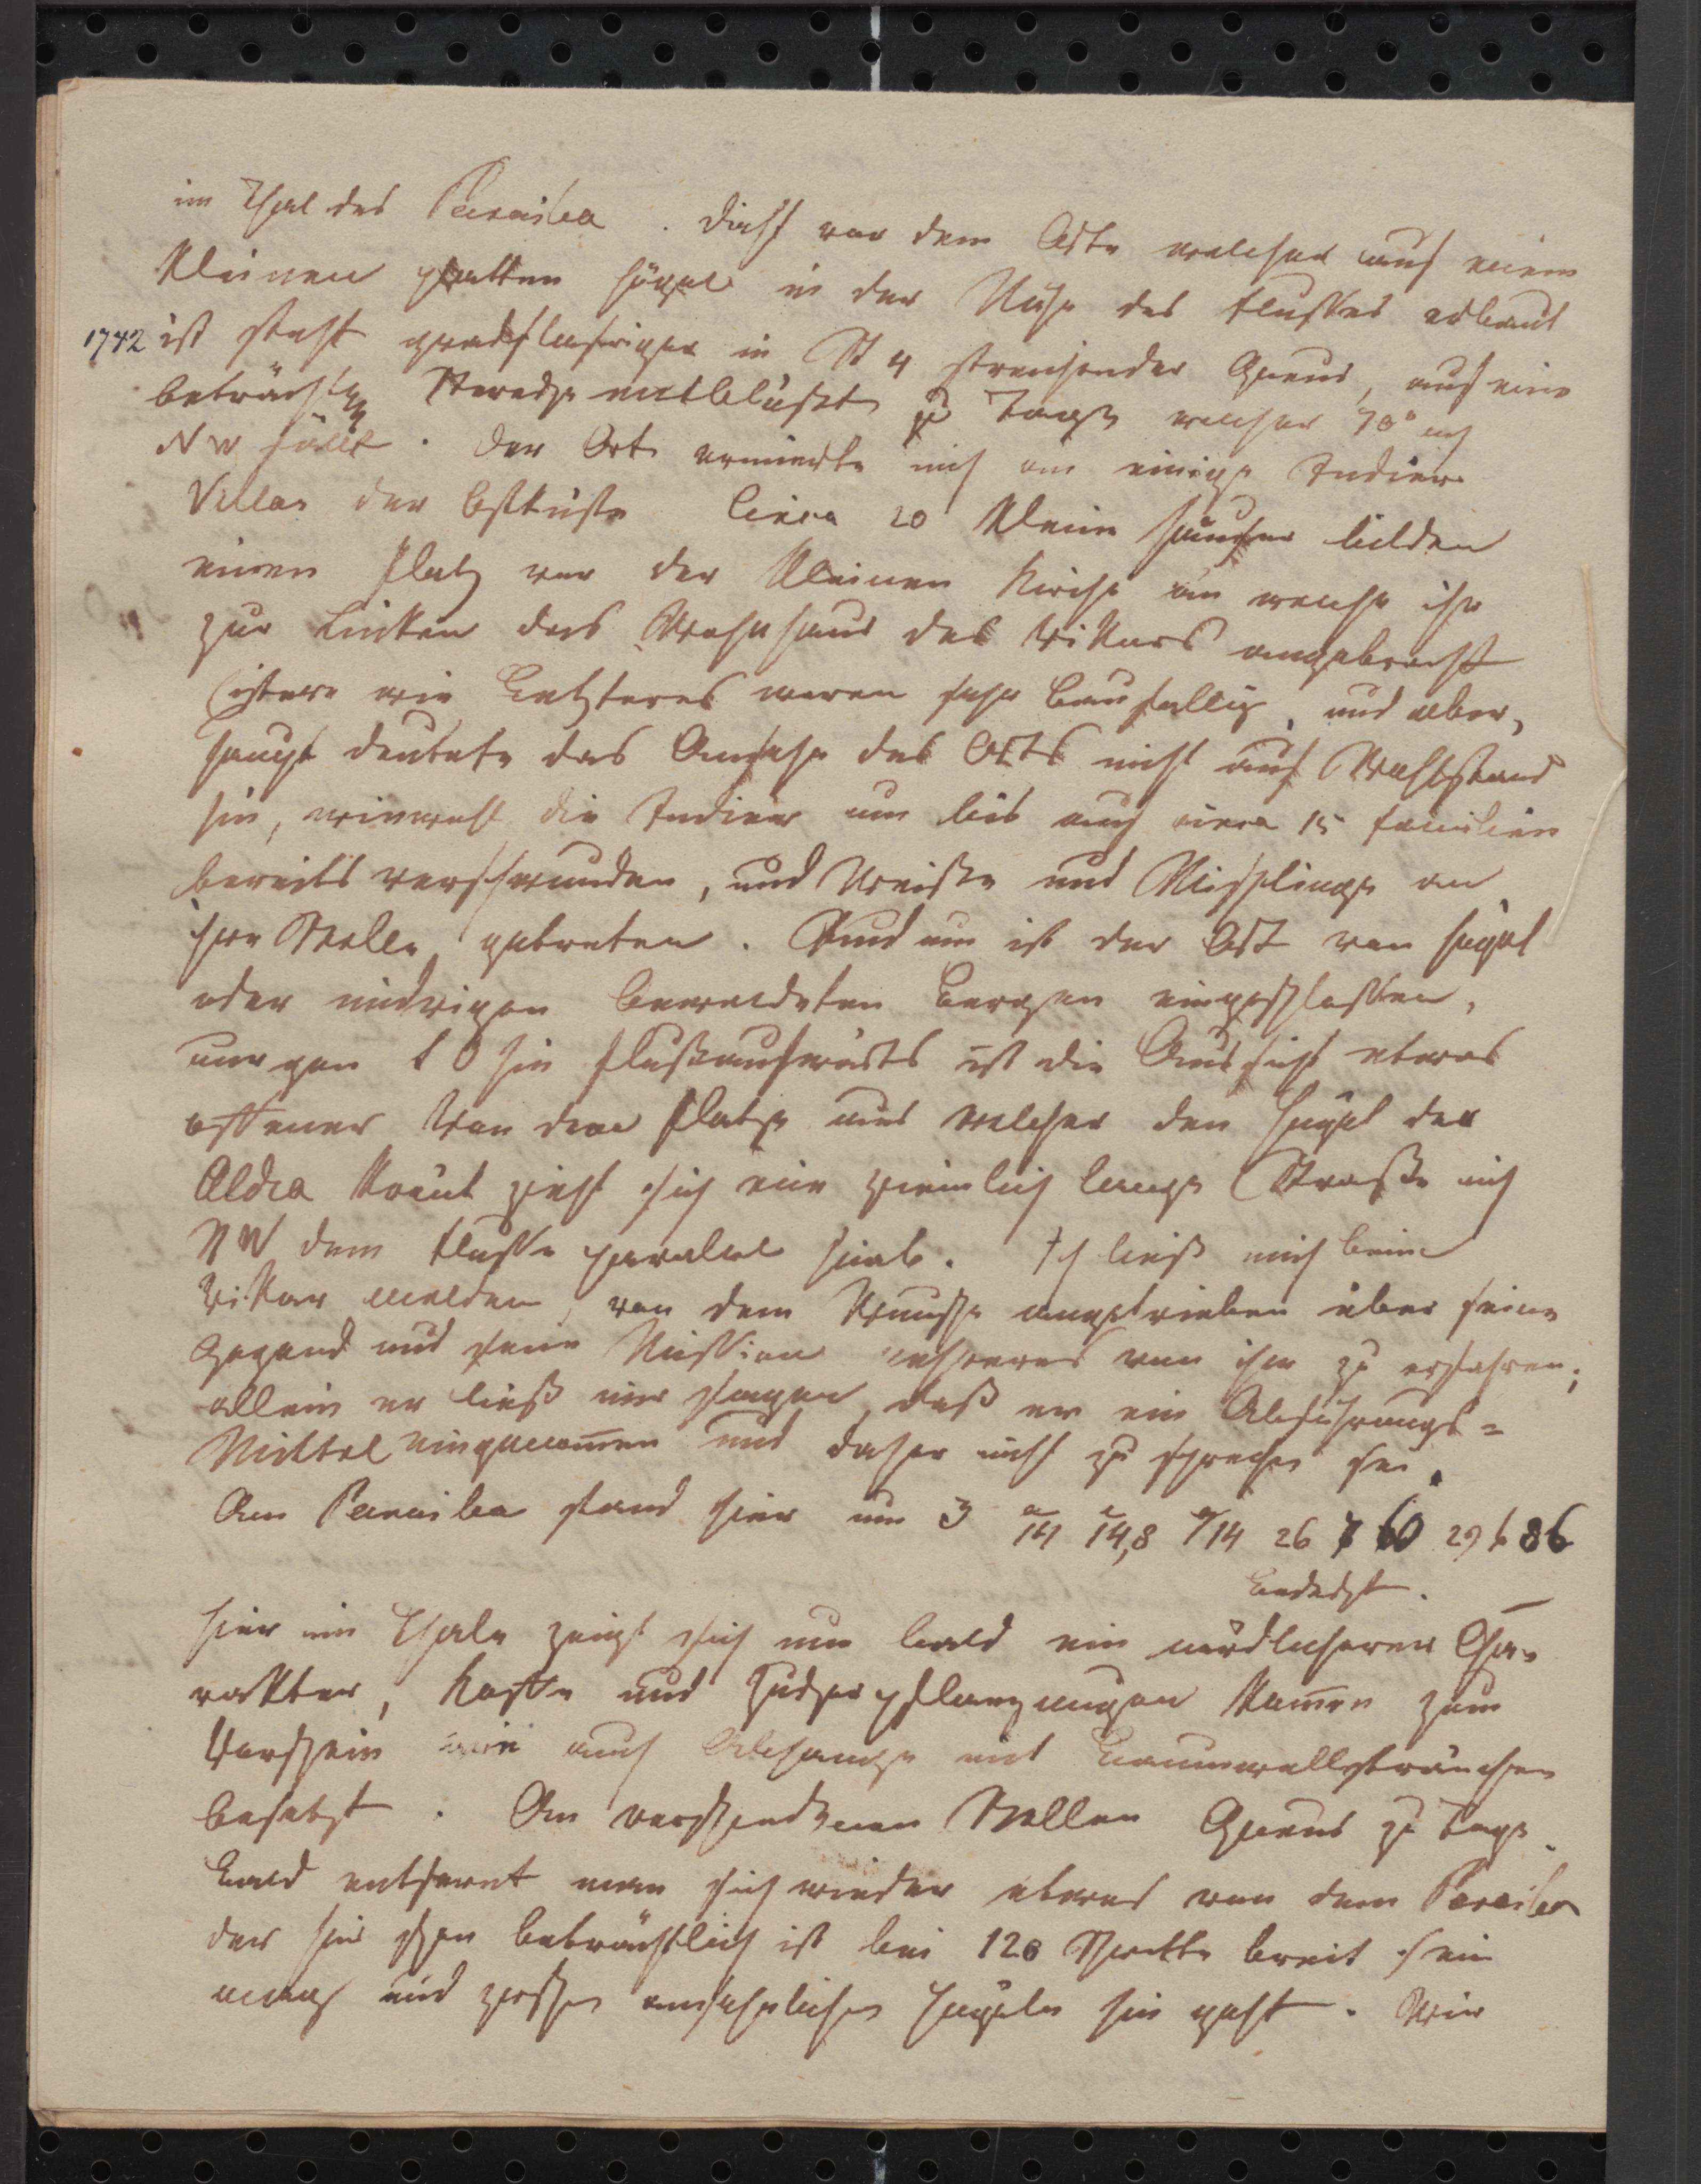 im Thal des Paraiba. Dicht vor dem Orte welcher auf einem
kleinen platten Hügel in der Nähe des Flusses erbaut
1742 ist steht gradflasriger in St 4 streichender Gneus, auf eine
beträchtl Strecke entblößt zu Tage welcher 70° nch
NW fällt. Der Ort erinnerte mich an einige Indier
Villas der Ostküste Circa 20 kleine Häuser bilden
einen Platz vor der kleinen Kirche an welche ihr
zur Linken das Wohnhaus des Vikars angebracht
Erstere wie Letzteres waren sehr baufällig, und über,
haupt deutete das Ansehn des Orts nicht auf Wohlstand
hin, wiewohl die Indier nun bis auf circa 15 Familien
bereits verschwunden, und Weiße und Mischlinge an
ihre Stelle getreten. Rund um ist der Ort von Hügel
oder niedrigen bewaldeten Bergen eingeschlossen,
nur gen SO hin flußaufwärts ist die Aussicht etwas
offener Von dem Platze aus welcher den Hügel der
Aldea krönt zieht sich eine ziemlich lange Straße nch
NW dem Flusse paralel hinab. Ich ließ mich beim
Vikar melden, von dem Wunsche angetrieben über seine
Gegend und seine Mission mehreres von ihm zu erfahren;
allein er ließ mir sagen, daß er ein Abführungs=
Mittel eingenommen und daher nicht zu sprechen sei.
Am Paraiba stand hier um 3 14 14,8 14 26 7 60 29 6 86
bedeckt.
Hier im Thale zeigt sich nun bald ein südlicherer Cha=
rakter, Kaffe und Zuckerpflanzungen kamen zum
Vorschein wie auch Abhänge mit Baumwollsträuchen
besetzt. An verschiedenen Stellen Gneus zu Tage.
Bald entfernt man sich wieder etwas von dem Paraiba
der hier schon beträchtlich ist bei 120 Schritte breit sein
mag und zwischen ansehnlichen Hügeln hin geht. Wir